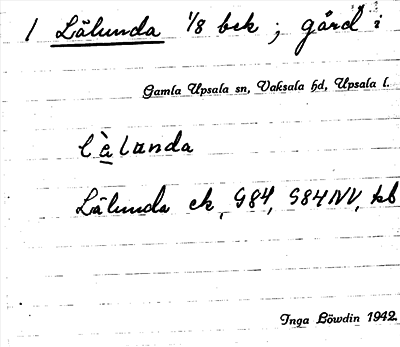 1 Lålunda 1/8 bek ; gård i
Gamla Upsala sn, Vaksala hd, Upsala l.
lὰlanda
Lålunda ek, G84, S84NV, kb
Inga Löwdin 1942.